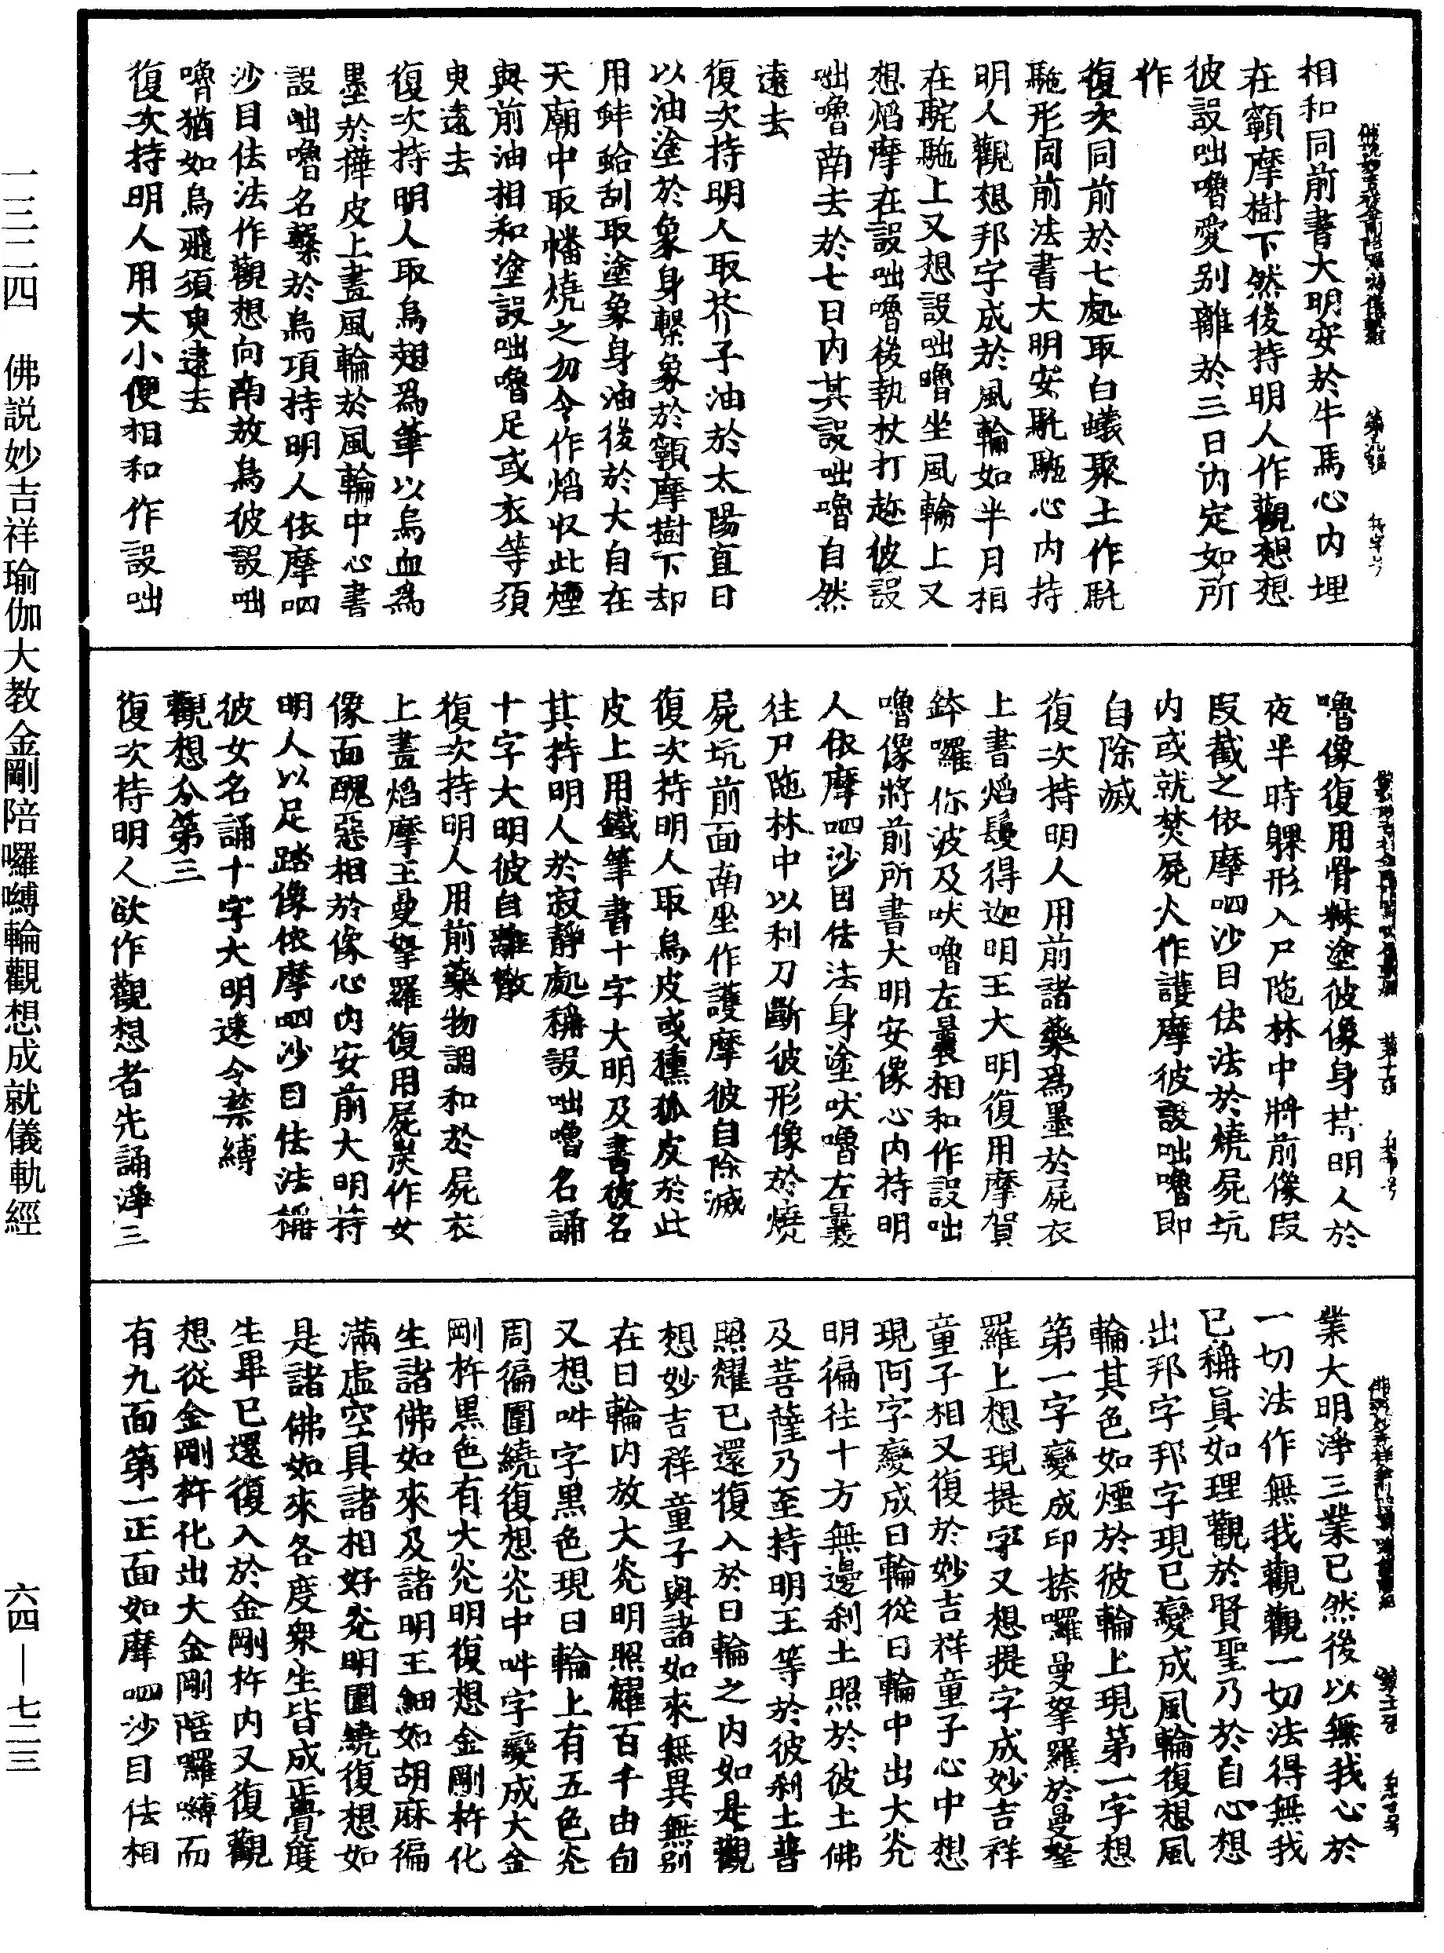 相和同前書大明安於牛馬心内埋
在顙摩樹下然後持明人作觀想想
彼設咄嚕愛别離於三日内定如所
作
復次同前於七處取白蟻聚土作馲
駞形同前法書大明安馲駞心内持
明人觀想邦字成於風輪如半月相
在駝駞上又想設咄嚕坐風輪上又
想焰摩在設咄嚕後執杖打趂彼設
咄嚕南去於七日内其設咄嚕自然
遠去
復次持明人取芥子油於太陽直日
以油塗於象身繫象於顙摩樹下却
用蚌蛤刮取塗象身油後於大自在
天廟中取幡燒之勿令作焰收此煙
與前油相和塗設咄嚕足或衣等須
臾遠去
復次持明人取烏翅爲筆以烏血爲
墨於樺皮上畫風輪於風輪中心書
設咄嚕名繫於烏項持明人依摩呬
沙目佉法作觀想向南放烏彼設咄
嚕猶如烏飛須臾逺去
復次持明人用大小便相和作設咄
嚕像復用骨粖塗彼像身持明人於
夜半時躶形入尸陁林中將前像段
段截之依摩呬沙目佉法於燒屍坑
内或就焚屍火作護摩彼設咄嚕即
自除滅
復次持明人用前諸藥爲墨於屍衣
上書焰鬘得迦明王大明復用摩賀
鉢囉你波及吠嚕左曩相和作設咄
嚕像將前所書大明安像心内持明
人依摩呬沙目佉法身塗吠嚕左曩
往尸陁林中以利刀斷彼形像於燒
屍坑前面南坐作護摩彼自除滅
復次持明人取烏皮或獯狐皮於此
皮上用鐵筆書十字大明及書彼名
其持明人於寂靜處稱設咄嚕名誦
十字大明彼自離散
復次持明人用前藥物調和於屍衣
上畫焰摩王曼拏羅復用屍炭作女
像面醜惡相於像心内安前大明持
明人以足踏像依摩呬沙目佉法稱
彼女名誦十字大明速令禁縛
觀想分第三
復次持明人欲作觀想者先誦淨三
業大明淨三業已然後以無我心於
一切法作無我觀觀一切法得無我
已稱眞如理觀於賢聖乃於自心想
出邦字邦字現已變成風輪復想風
輪其色如煙於彼輪上現第一字想
第一字變成印捺囉曼拏羅於曼拏
羅上想現提字又想提字成妙吉祥
童子相又復於妙吉祥童子心中想
現阿字變成日輪從日輪中出大光
明徧往十方無邊刹土照於彼土佛
及菩薩乃至持明王等於彼刹土普
照耀已還復入於日輪之内如是觀
想妙吉祥童子與諸如來無異無别
在日輪内放大光明照耀百千由旬
又想吽字黑色現日輪上有五色光
周徧圍繞復想光中吽字變成大金
剛杵黑色有大光明復想金剛杵化
生諸佛如來及諸明王細如胡麻徧
滿虚空具諸相好光明圍繞復想如
是諸佛如來各度衆生皆成正覺度
生畢已還復入於金剛杵内又復觀
想從金剛杵化出大金剛陪囉嚩而
有九面第一正面如摩呬沙目佉相
一三二四　佛説妙吉祥瑜伽大教金剛陪囉嚩輪觀想成就儀軌經
六四—七二三